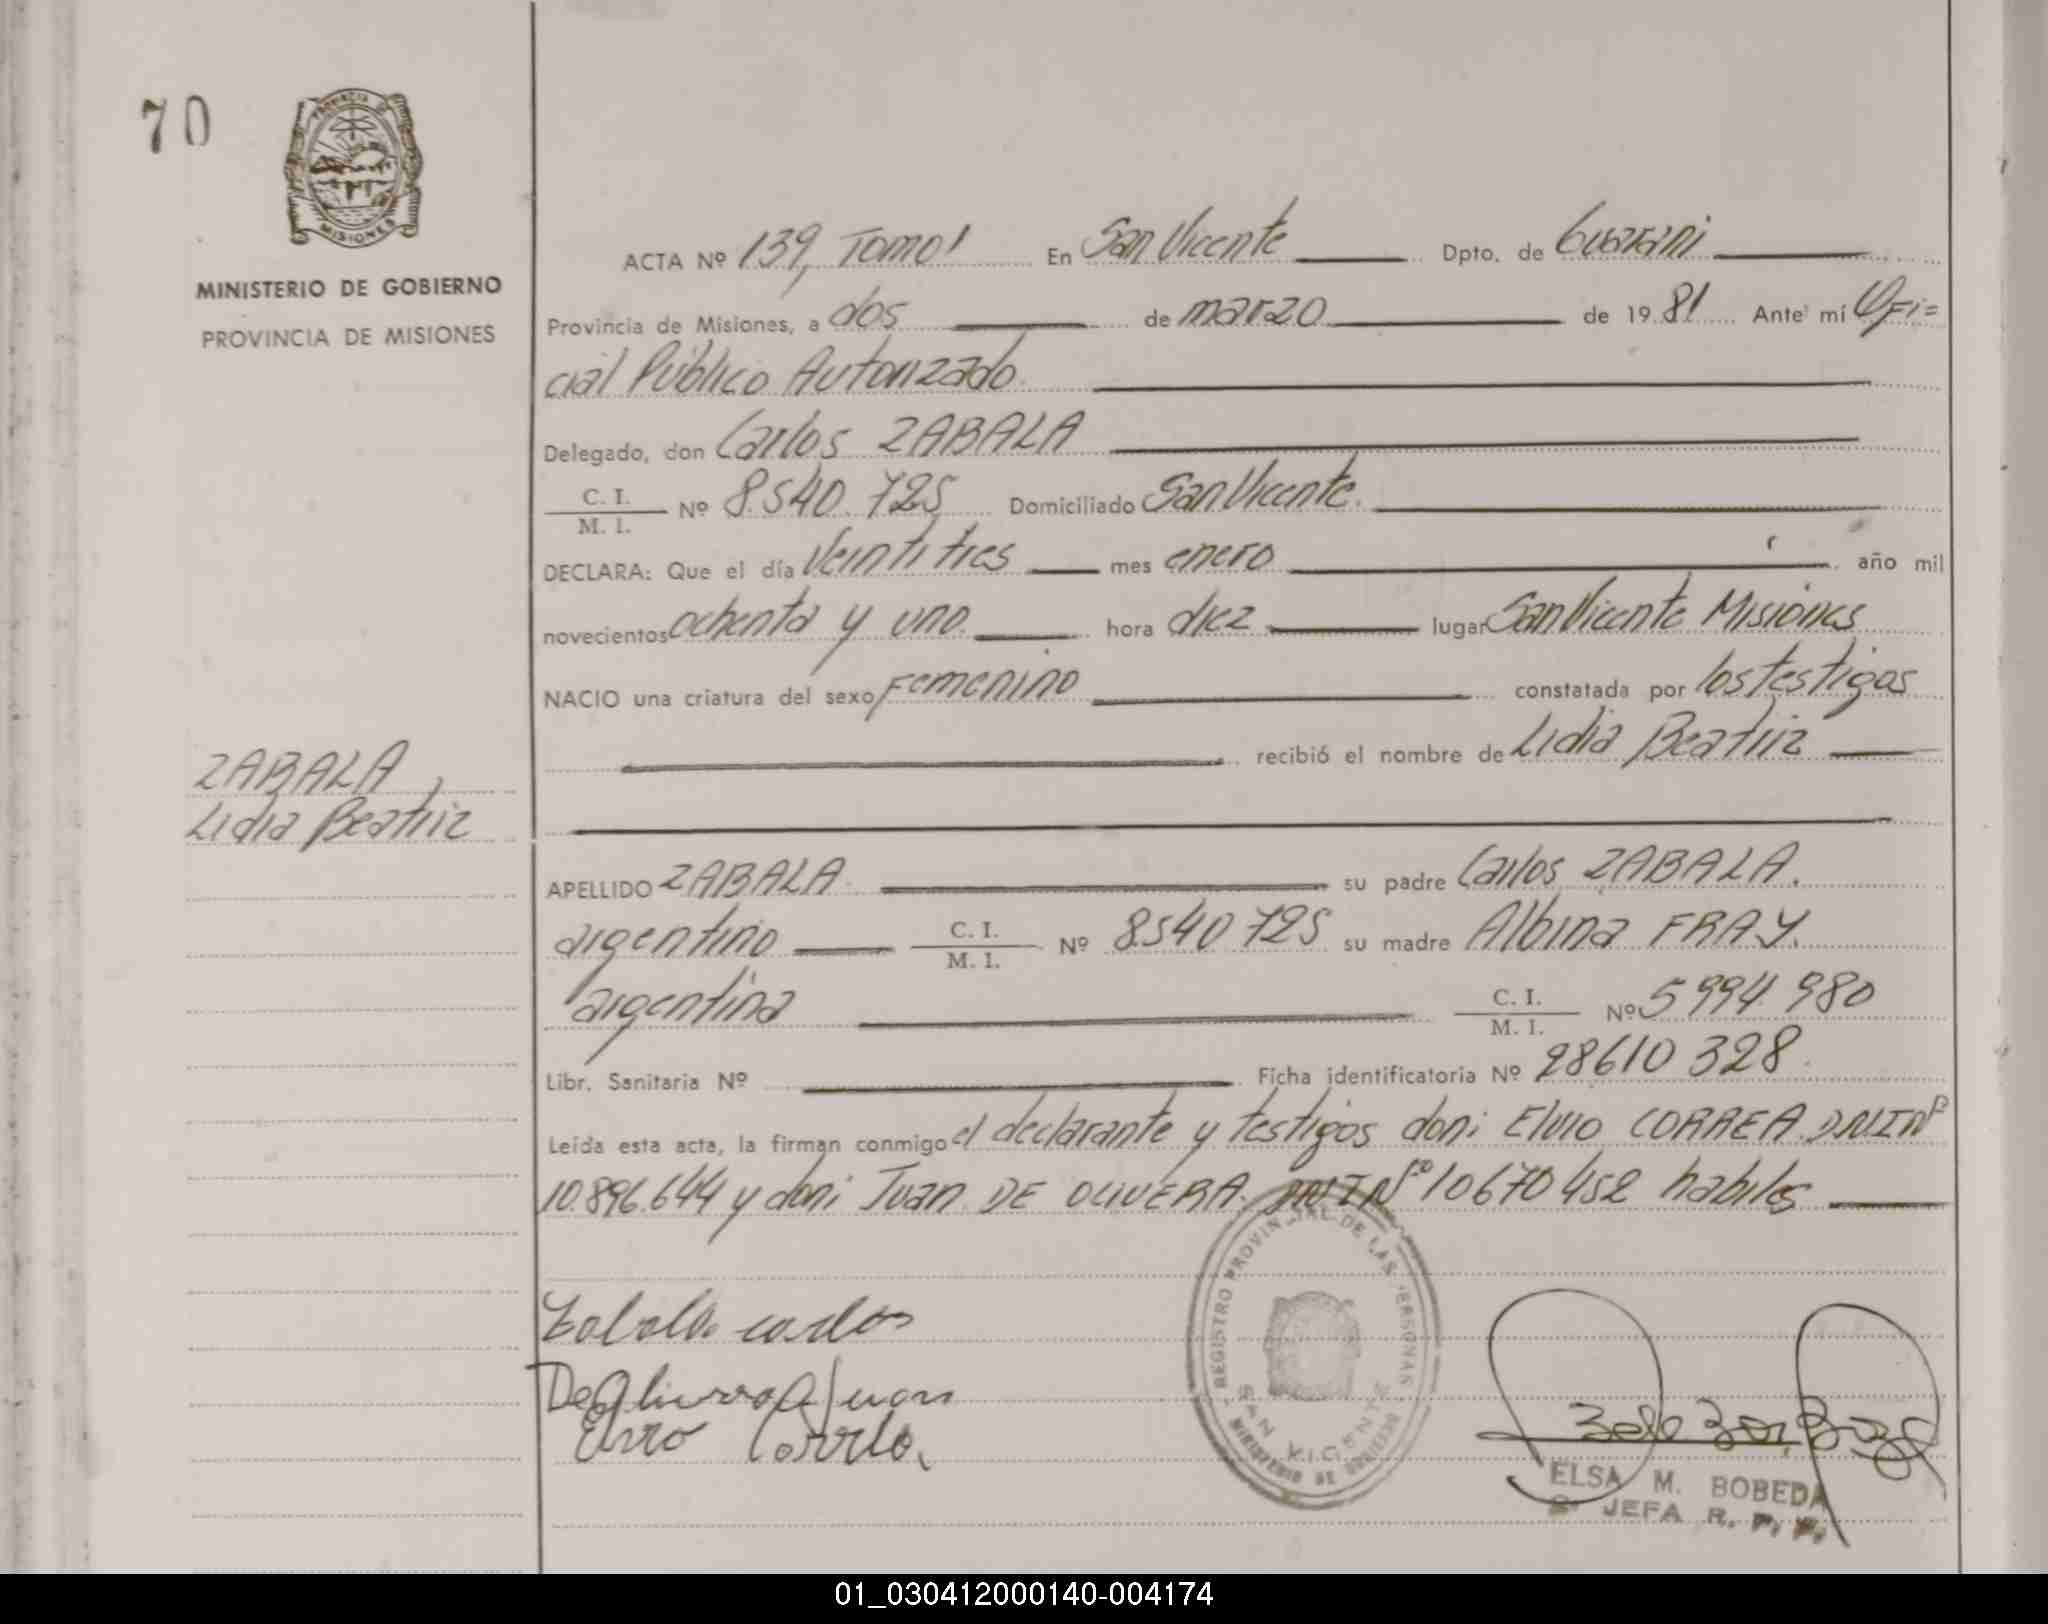 70
PROVINCIA DE
MISIONES
MINISTERIO DE GOBIERNO
PROVINCIA DE MISIONES
ACTA Nº 139, Tomo I En San Vicente Dpto. de Guarani
Provincia de Misiones, a dos de marzo de 19 81 Ante mí Ofi=
cial Público Autorizado
Delegado, don Carlos ZABALA
C. I.
M. I. Nº 8.540.725 Domiciliado San Vicente.
DECLARA: Que el día Veintitres mes enero año mil
novecientos ochenta y uno hora diez lugar San Vicente Misiones
NACIO una criatura del sexo Femenino constatada por los testigos
recibió el nombre de Lidia Beatriz
ZABALA,
Lidia Beatriz
APELLIDO ZABALA su padre Carlos ZABALA.
argentino C. I.
M. I. Nº 8.540 725 su madre Albina FRAY.
argentina C. I.
M. I. Nº 5 994 980
Libr. Sanitaria Nº Ficha identificatoria Nº 28610 328.
Leída esta acta, la firman conmigo el declarante y testigos don: Elvio CORREA DNI Nº
10.896.644 y don: Juan DE OLIVERA. DNI Nº 10670452 habiles
REGISTRO PROVINCIAL DE LAS PERSONAS
SAN VICENTE
MINISTERIO DE GOBIERNO
Zabala carlos
De Olivera Juan
Elvio Correa
ELSA M. BOBEDA
JEFA R. P. P.
01_030412000140-004174